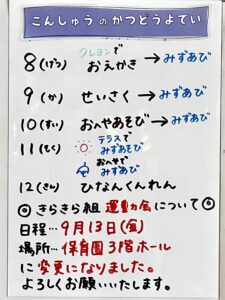 こんしゅう の かつどうよてい
クレヨンで
8(げつ) おえかき → みずあび
9(か) せいさく → みずあび
10(すい) おへやあそび → みずあび
11(もく) テラスで みずあそび
おへやで みずあび
12(きん) ひなんくんれん
◎きらきら組 運動会について◎
日程…9月13日(金)
場所…保育園3階ホール
に変更になりました。
よろしくお願いいたします。